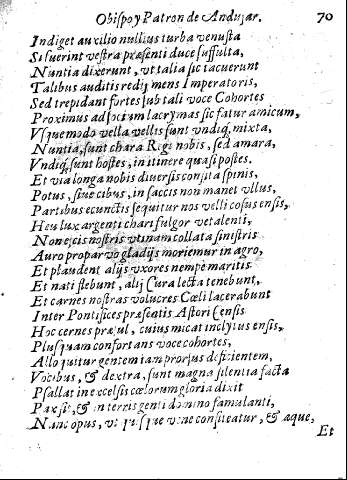 Obispo y Patron de Andujar. 70
Indiget auxilio nullius turba venusta
Si fuerint vestra præsenti duce suffulta,
Nuntia dixerunt, ut talia sic tacuerunt
Talibus auditis redij mens Imperatoris,
Sed trepidant fortes sub tali voce Cohortes
Proximus ad socium lacrymas sic fatur amicum,
Vsquemodo vella vellis sunt undiq, mixta,
Nuntia, sunt chara Regi nobis, sed amara,
Vndiq, sunt hostes, in itinere quasi postes.
Et via longa nobis diversis consita spinis,
Potus, sive cibus, in saccis non manet ullus,
Partibus ecunctis sequitur nos velli cosus ensis,
Heu lux argenti chari fulgor vetalenti,
Non eijcis nostris utinam collata sinistris
Auro proparvo gladijs moriemur in agro,
Et plaudent alijs uxores nempe maritis
Et nati flebunt, alij Cura lecta tenebunt,
Et carnes nostras volucres Cœli lacerabunt
Inter Pontifices præsentis Astori Censis
Hoc cernes præsul, cuius micat inclytus ensis,
Plusquam confortans voce cohortes,
Alloquitur gentem iam prorsus deficientem,
Vocibus, & dextra, sunt magna silentia facta
Psallat in excelsis cœlorum gloria dixit
Pax sit, & in terris genti domino famulanti,
Nunc opus, ut quisque bene confiteatur, & aque,
Et